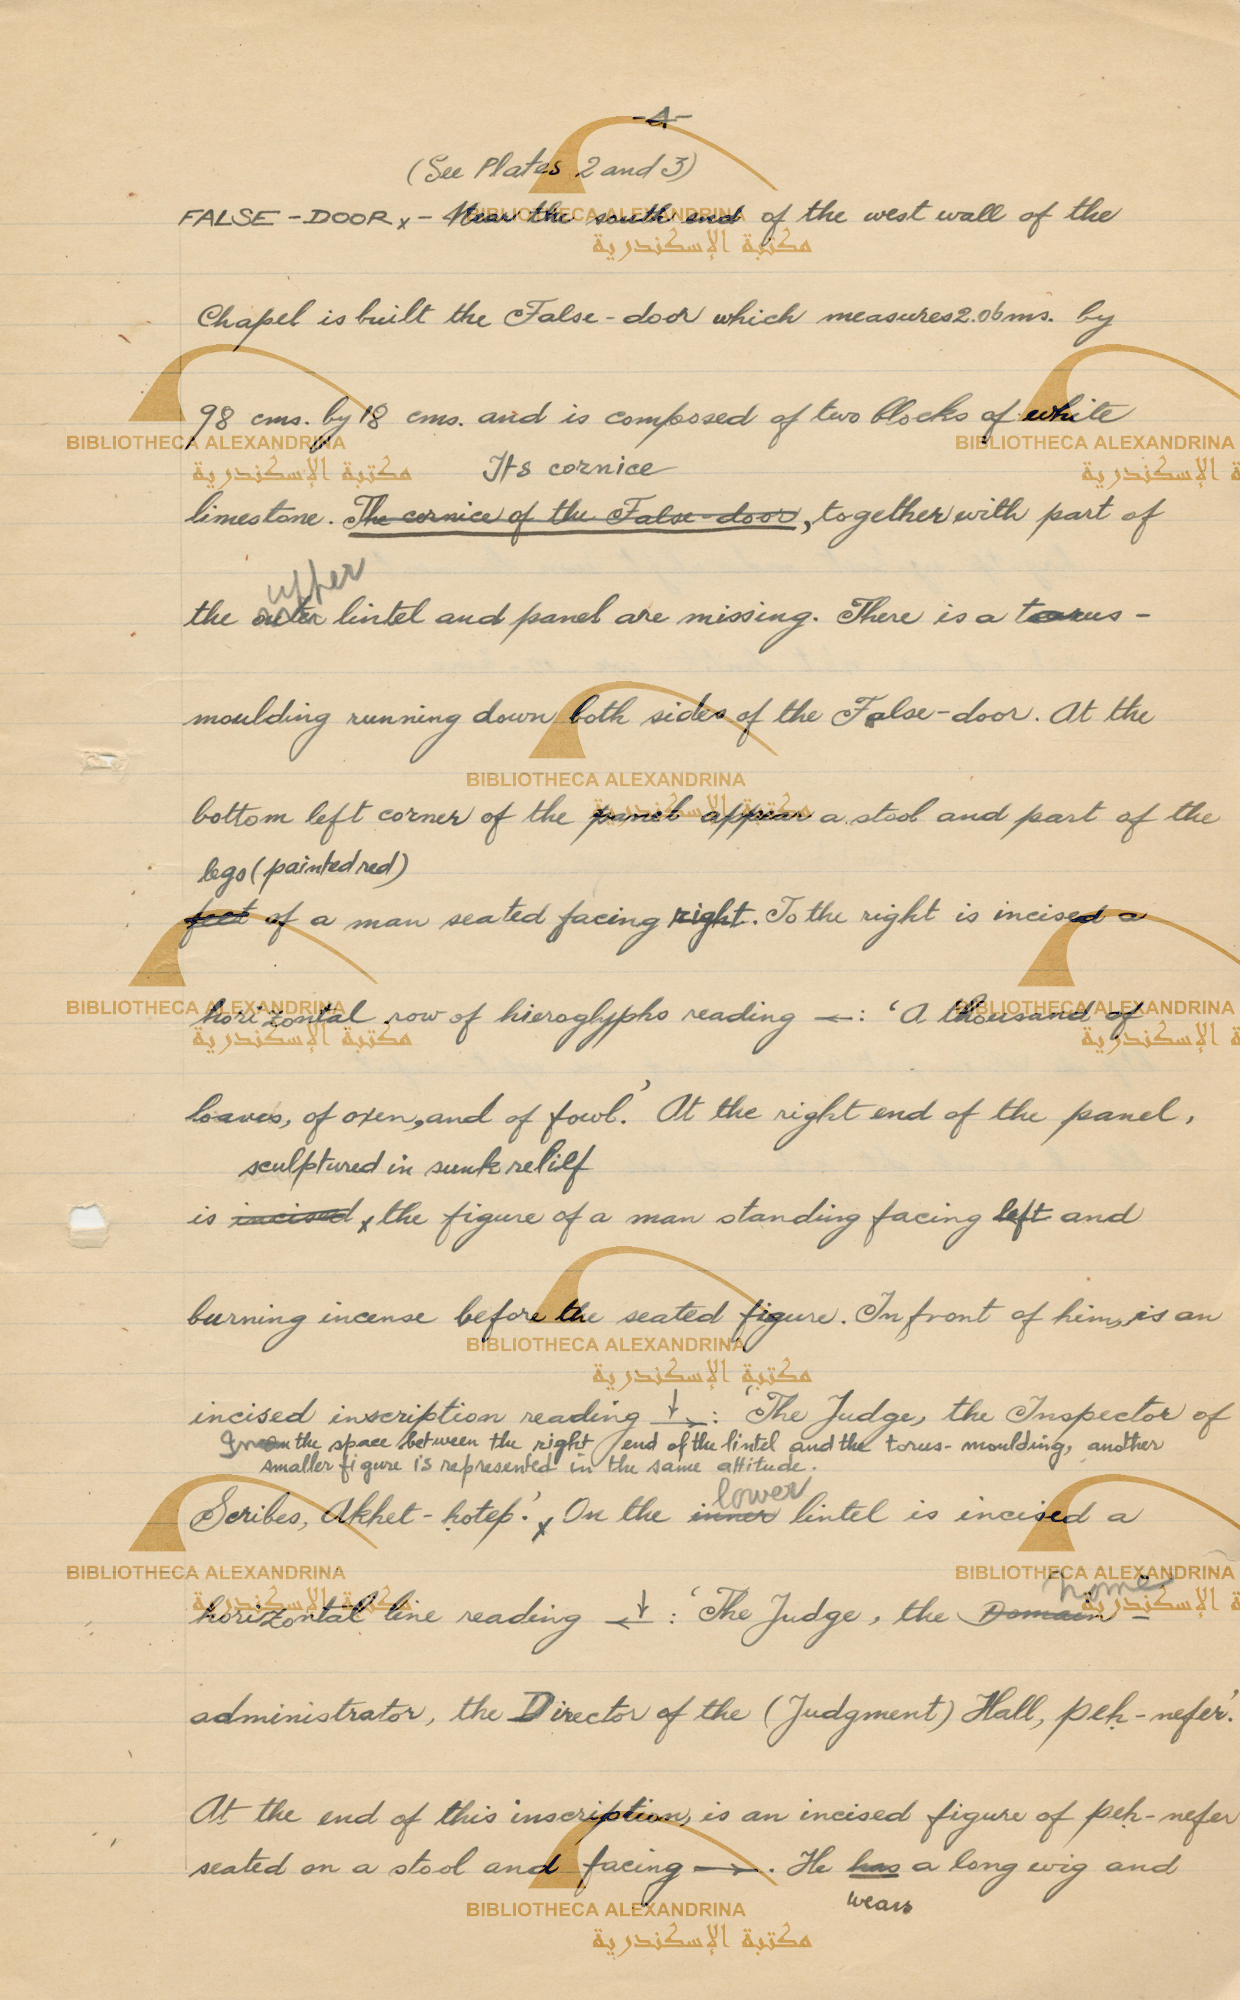 -4-
(See Plates 2 and 3)
FALSE-DOOR x - Near the south end of the west wall of the
Chapel is built the False-door which measures 2.06 ms. by
98 cms. by 18 cms. and is composed of two blocks of white
Its cornice
limestone. The cornice of the False-door, together with part of
upper
the outer lintel and panel are missing. There is a torus-
moulding running down both sides of the False-door. At the
bottom left corner of the panel appear a stool and part of the
legs (painted red)
feet of a man seated facing right. To the right is incised a
horizontal row of hieroglyphs reading ←: 'A thousand of
loaves, of oxen, and of fowl.' At the right end of the panel,
sculptured in sunk relief
is incised x the figure of a man standing facing left and
burning incense before the seated figure. In front of him, is an
incised inscription reading ↓→: 'The Judge, the Inspector of
In the space between the right end of the lintel and the torus-moulding, another
smaller figure is represented in the same attitude.
Scribes, Akhet-ḥotep.' x On the inner lintel is incised a
lower
horizontal line reading ←↓: 'The Judge, the Domain-
home
administrator, the Director of the (Judgment) Hall, Peḥ-nefer.'
At the end of this inscription, is an incised figure of Peḥ-nefer
seated on a stool and facing →. He has a long wig and
wears
BIBLIOTHECA ALEXANDRINA
مكتبة الإسكندرية
BIBLIOTHECA ALEXANDRINA
مكتبة الإسكندرية
BIBLIOTHECA ALEXANDRINA
مكتبة الإسكندرية
BIBLIOTHECA ALEXANDRINA
مكتبة الإسكندرية
BIBLIOTHECA ALEXANDRINA
مكتبة الإسكندرية
BIBLIOTHECA ALEXANDRINA
مكتبة الإسكندرية
BIBLIOTHECA ALEXANDRINA
مكتبة الإسكندرية
BIBLIOTHECA ALEXANDRINA
مكتبة الإسكندرية
BIBLIOTHECA ALEXANDRINA
مكتبة الإسكندرية
BIBLIOTHECA ALEXANDRINA
مكتبة الإسكندرية